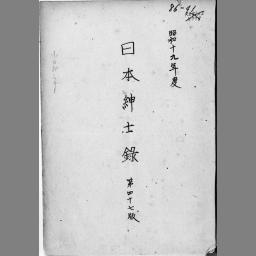 86-91
昭和十九年度
日本紳士録
第四十七版